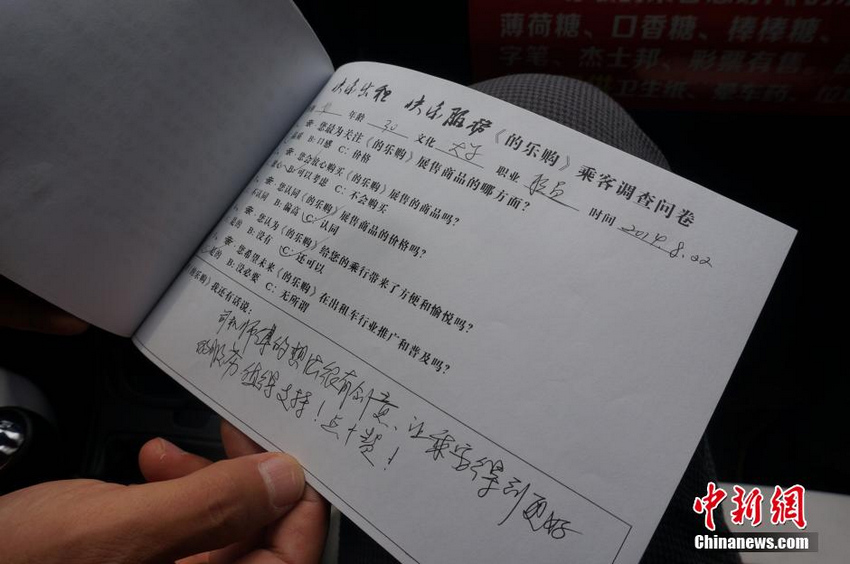 薄荷糖、口香糖、棒棒糖、
字笔、杰士邦、彩票有售。
卫生纸、晕车药、
快乐出租 快乐服务《的乐购》乘客调查问卷
年龄 30 文化 大学 职业 时间 2014.8.22
您最为关注《的乐购》展售商品的哪方面?
B:口感 C:价格
您会放心购买《的乐购》展售的商品吗?
可以考虑 C:不会购买
您认同《的乐购》展售商品的价格吗?
不认同 B:偏高 C:认同
您认为《的乐购》给您的乘行带来了方便和愉悦吗?
是的 B:没有 C:还可以
您希望未来《的乐购》在出租车行业推广和普及吗?
是的 B:没必要 C:无所谓
的乐购》我还有话说:
司机师傅的想法很有创意、让乘客得到更好
的服务 值得支持!点个赞!
中新网
Chinanews.com